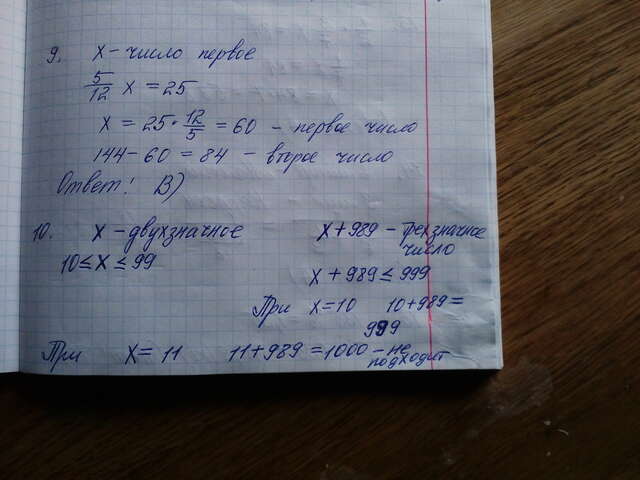 9. x - число первое
5/12 x = 25
x = 25 · 12/5 = 60 - первое число
144 - 60 = 84 - второе число
Ответ: В)
10. x - двухзначное x + 989 - трехзначное число
10 ≤ x ≤ 99
x + 989 ≤ 999
При x = 10 10 + 989 = 999
При x = 11 11 + 989 = 1000 - не подходит